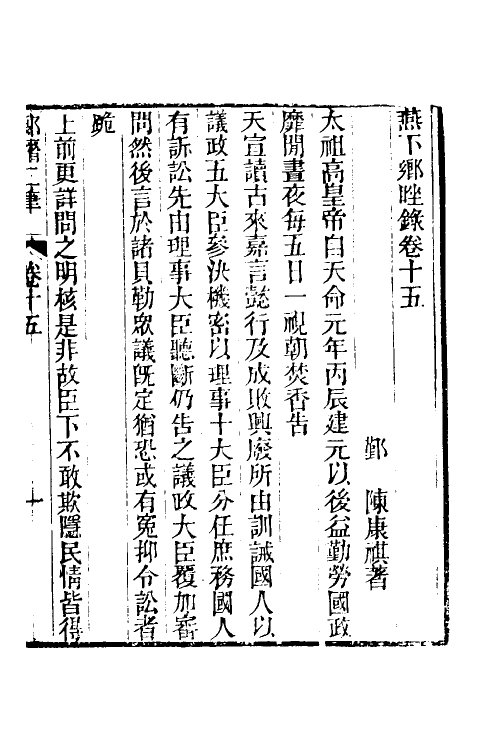 燕下鄉脞錄卷十五
鄞 陳康祺著
太祖高皇帝自天命元年丙辰建元以後益勤勞國政
靡閒晝夜每五日一視朝焚香告
天宣讀古來嘉言懿行及成敗興廢所由訓誡國人以
議政五大臣參決機密以理事十大臣分任庶務國人
有訴訟先由理事大臣聽斷仍告之議政大臣覆加審
問然後言於諸貝勒眾議旣定猶恐或有冤抑令訟者
跪
上前更詳問之明核是非故臣下不敢欺隱民情皆得
郎潛二筆 卷十五 一